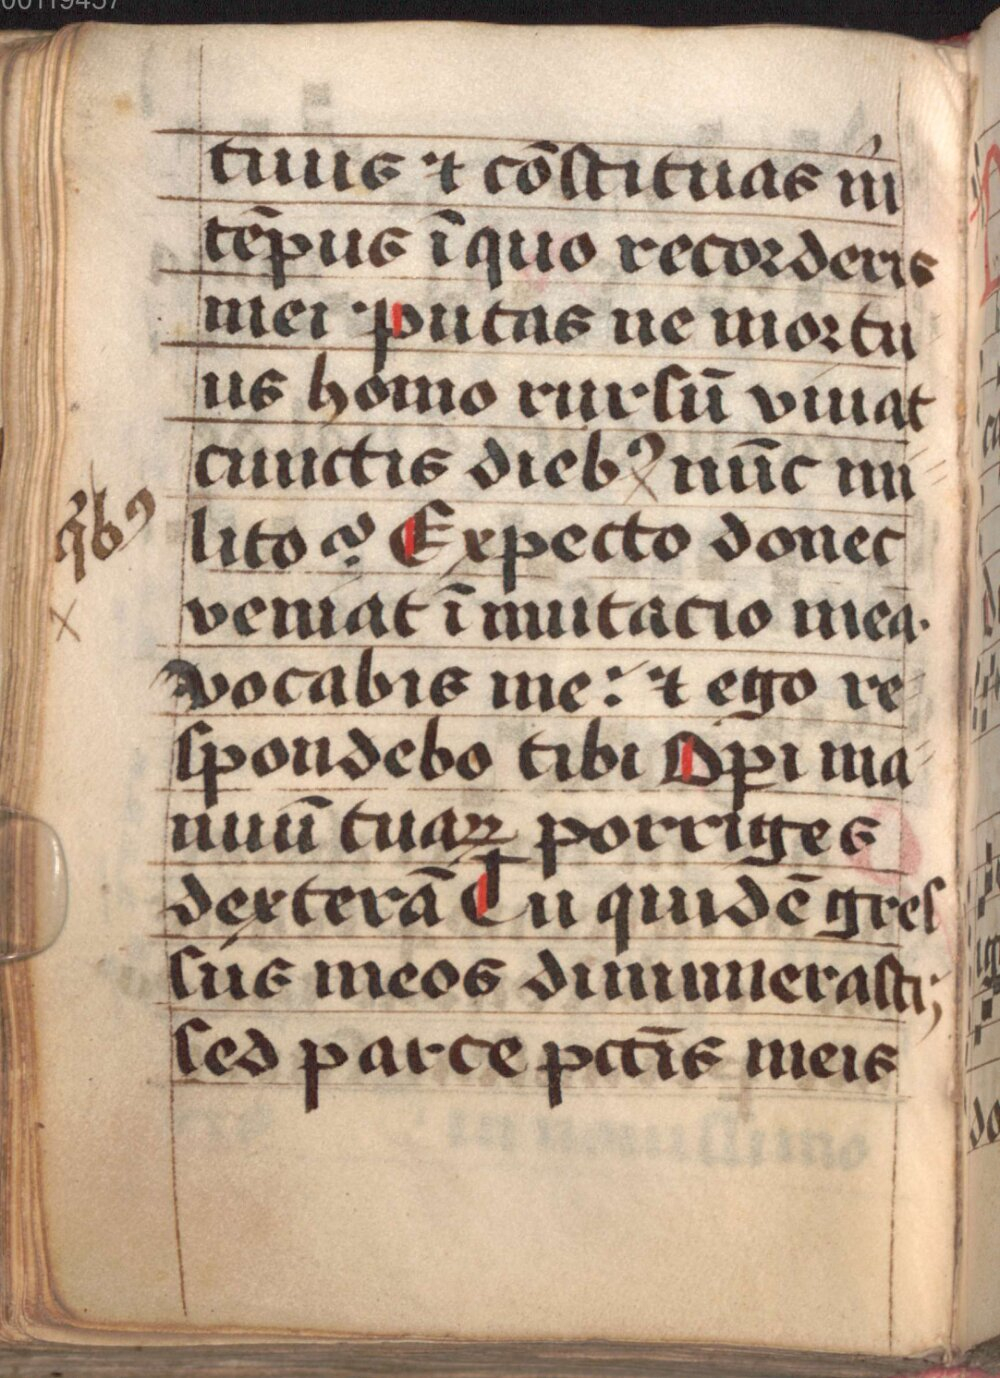 tuus ⁊ cōstituas m
tēpus ī quo recorderis
mei · putas ne mortu
us homo rursū viuat
cunctis diebꝰ nūc mi
qͥbꝰ
lito ? Expecto donec
veniat īmutacio mea.
vocabis me : ⁊ ego re
spondebo tibi Opi ma
nuū tuaꝝ porriges
dexterā Tu quidē gres
sus meos dinumerasti ;
sed parce pctīs meis